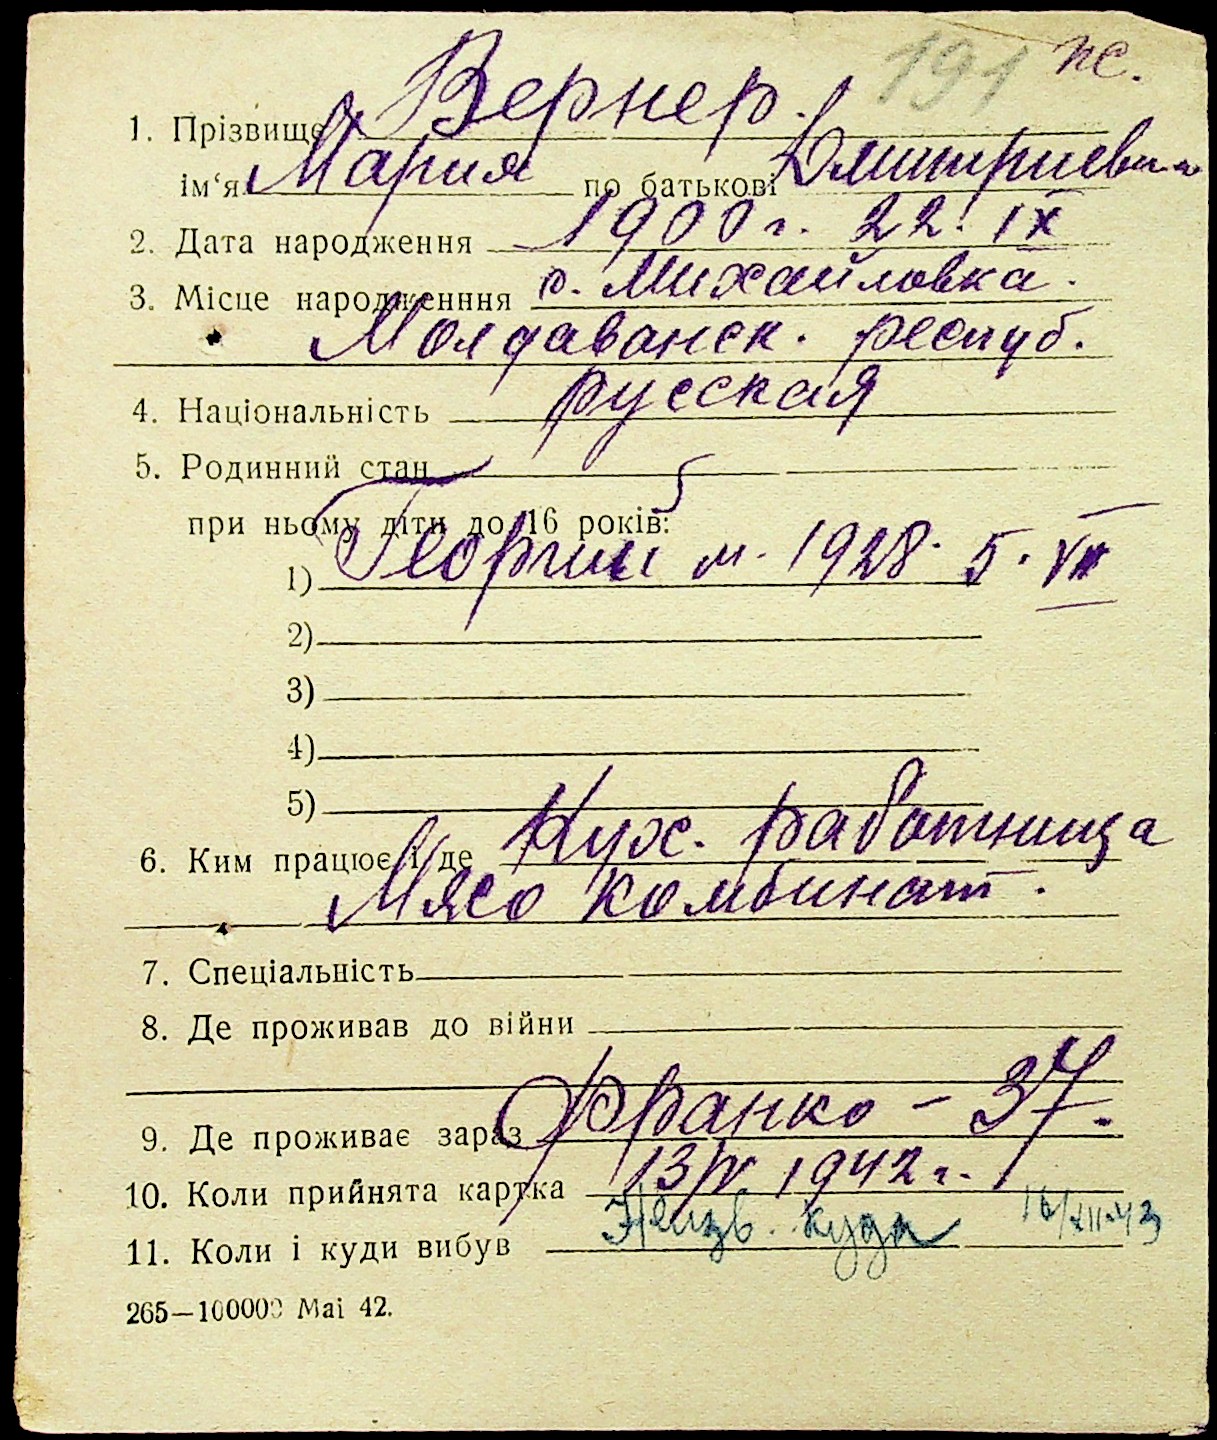 191 пс.
1. Прізвище Вернер.
ім‘я Мария по батькові Дмитриевна
2. Дата народження 1900 г. 22. IX
3. Місце народженння с. Михайловка.
Молдаванск. респуб.
4. Національність русская
5. Родинний стан
при ньому діти до 16 років:
1) Георгий м. 1928. 5. VII
2)
3)
4)
5)
6. Ким працює і де Кух. работница
Мясо комбинат.
7. Спеціальність
8. Де проживав до війни
9. Де проживає зараз Франко – 37.
10. Коли прийнята картка 13/IV 1942 г.
11. Коли і куди вибув Неизв. куда 16/XII-43
265—100000 Маі 42.